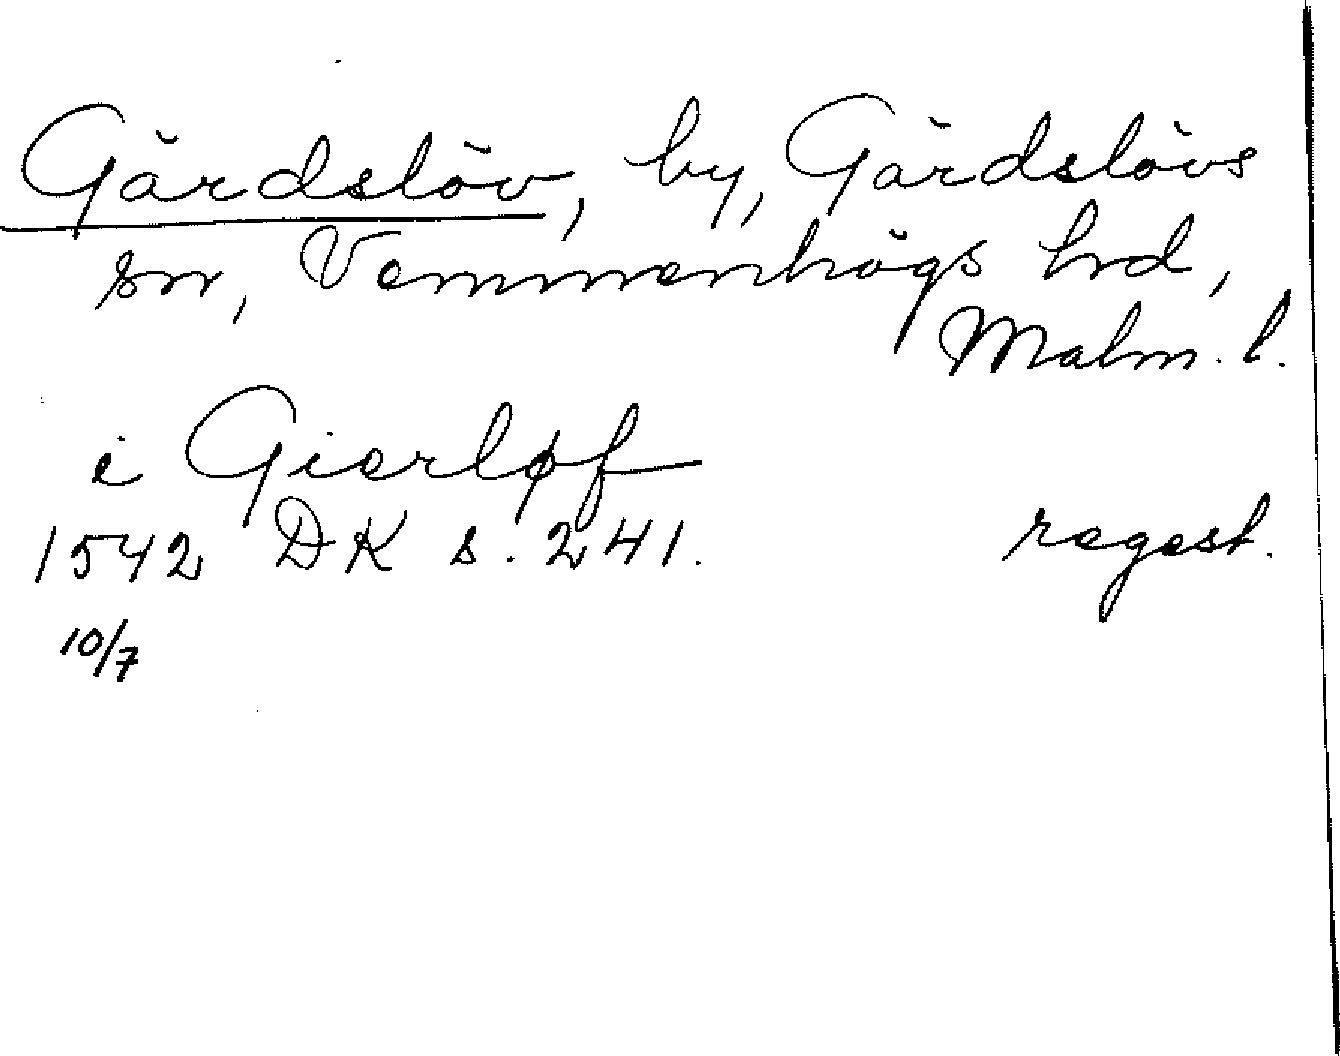 Gärdslöv, by, Gärdslövs
sn, Vemmenhögs hrd,
Malm. l.
i Gierløf
1542 DK s. 241. regest.
10/7